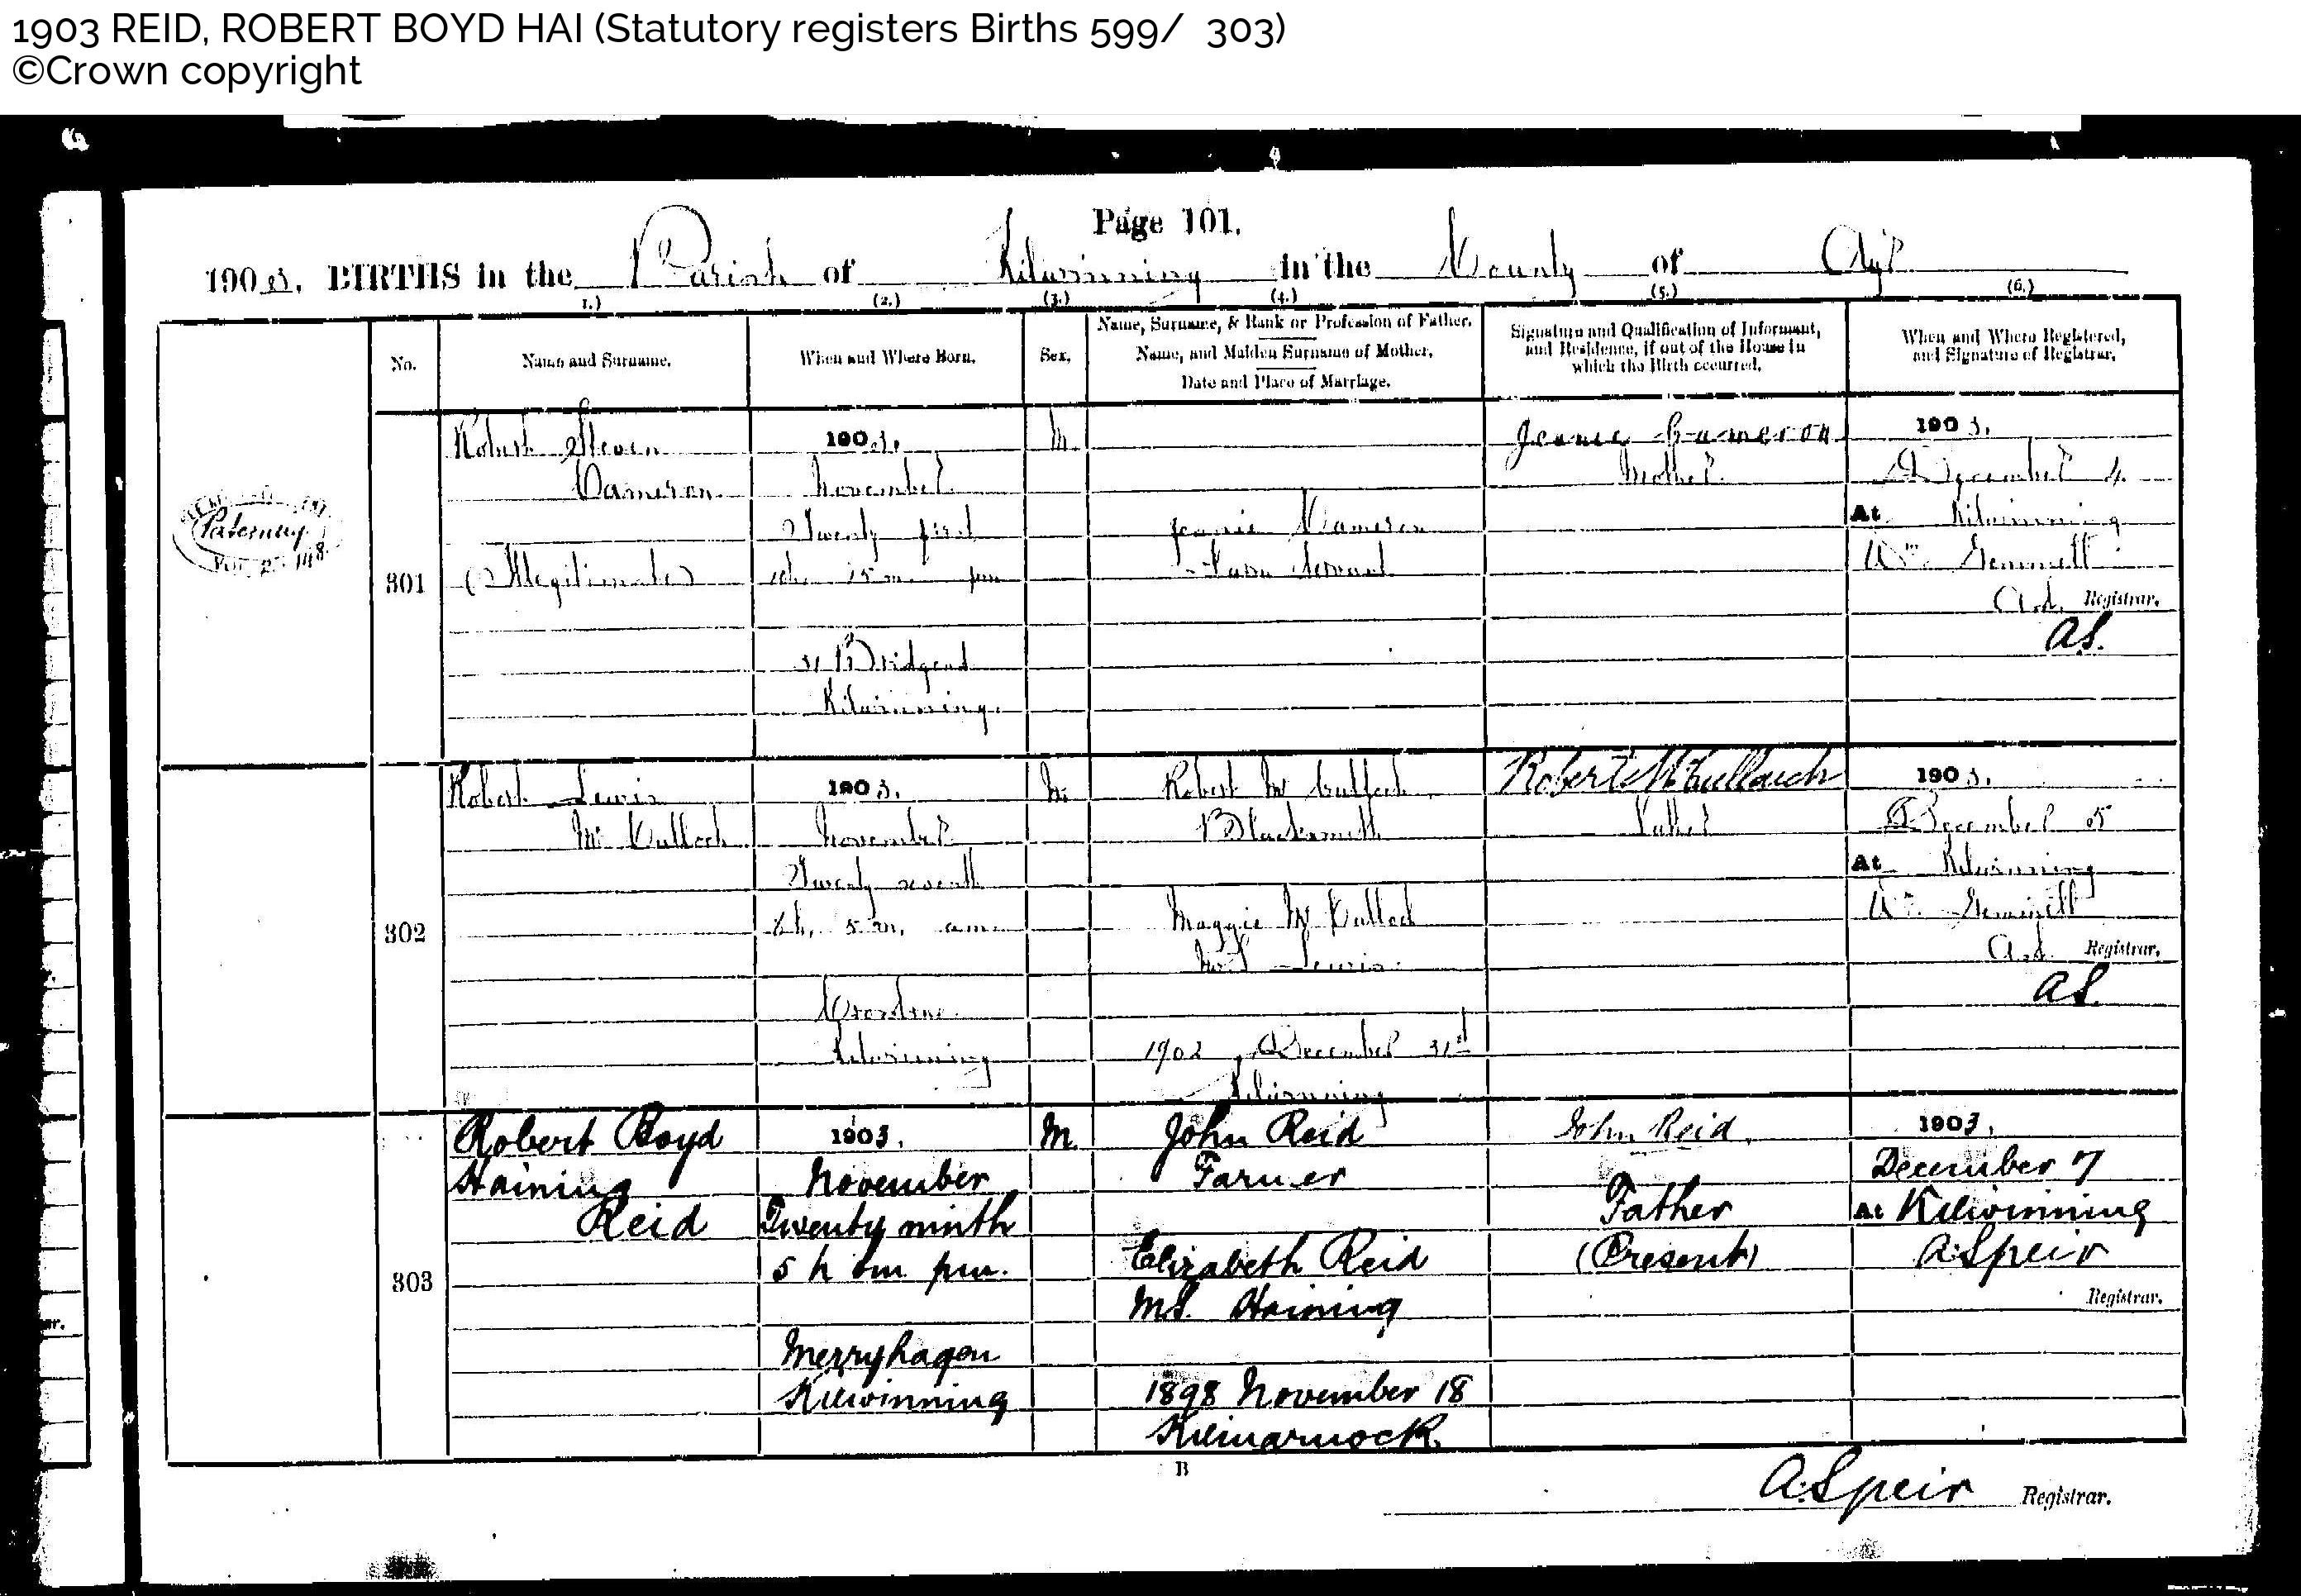 1903 REID, ROBERT BOYD HAI (Statutory registers Births 599/ 303)
©Crown copyright
Page 101.
1903. BIRTHS in the Parish of Kilwinning in the County of Ayr
(1.) (2.) (3.) (4.) (5.) (6.)
No.
Name and Surname.
When and Where Born.
Sex.
Name, Surname, & Rank or Profession of Father.
Name, and Maiden Surname of Mother.
Date and Place of Marriage.
Signature and Qualification of Informant,
and Residence, if out of the House in
which the Birth occurred.
When and Where Registered,
and Signature of Registrar.
Paternity
301
Robert Steven
Cameron
(Illegitimate)
1903.
November
Twenty first
15 m. pm
31 Bridgend
Kilwinning.
M.
Jeanie Cameron
Farm Servant
Jeanie Cameron
Mother
1903.
December 4
At Kilwinning
Wm. Gemmell
Registrar.
A.S.
302
Robert Lewis
McCulloch
1903.
November
Twenty seventh
5 m. am
Kilwinning
M.
Robert McCulloch
Blacksmith
Maggie McCulloch
M.S. Lewis
1902, December 31st
Kilwinning
Robert McCulloch
Father
1903.
December 5
At Kilwinning
Wm. Gemmell
Registrar.
A.S.
303
Robert Boyd
Haining
Reid
1903.
November
Twenty ninth
5 h 0m pm.
Merryhagen
Kilwinning
M.
John Reid
Farmer
Elizabeth Reid
M.S. Haining
1898 November 18
Kilmarnock.
John Reid.
Father
(Present)
1903.
December 7
At Kilwinning
A. Speir
Registrar.
B
A. Speir Registrar.